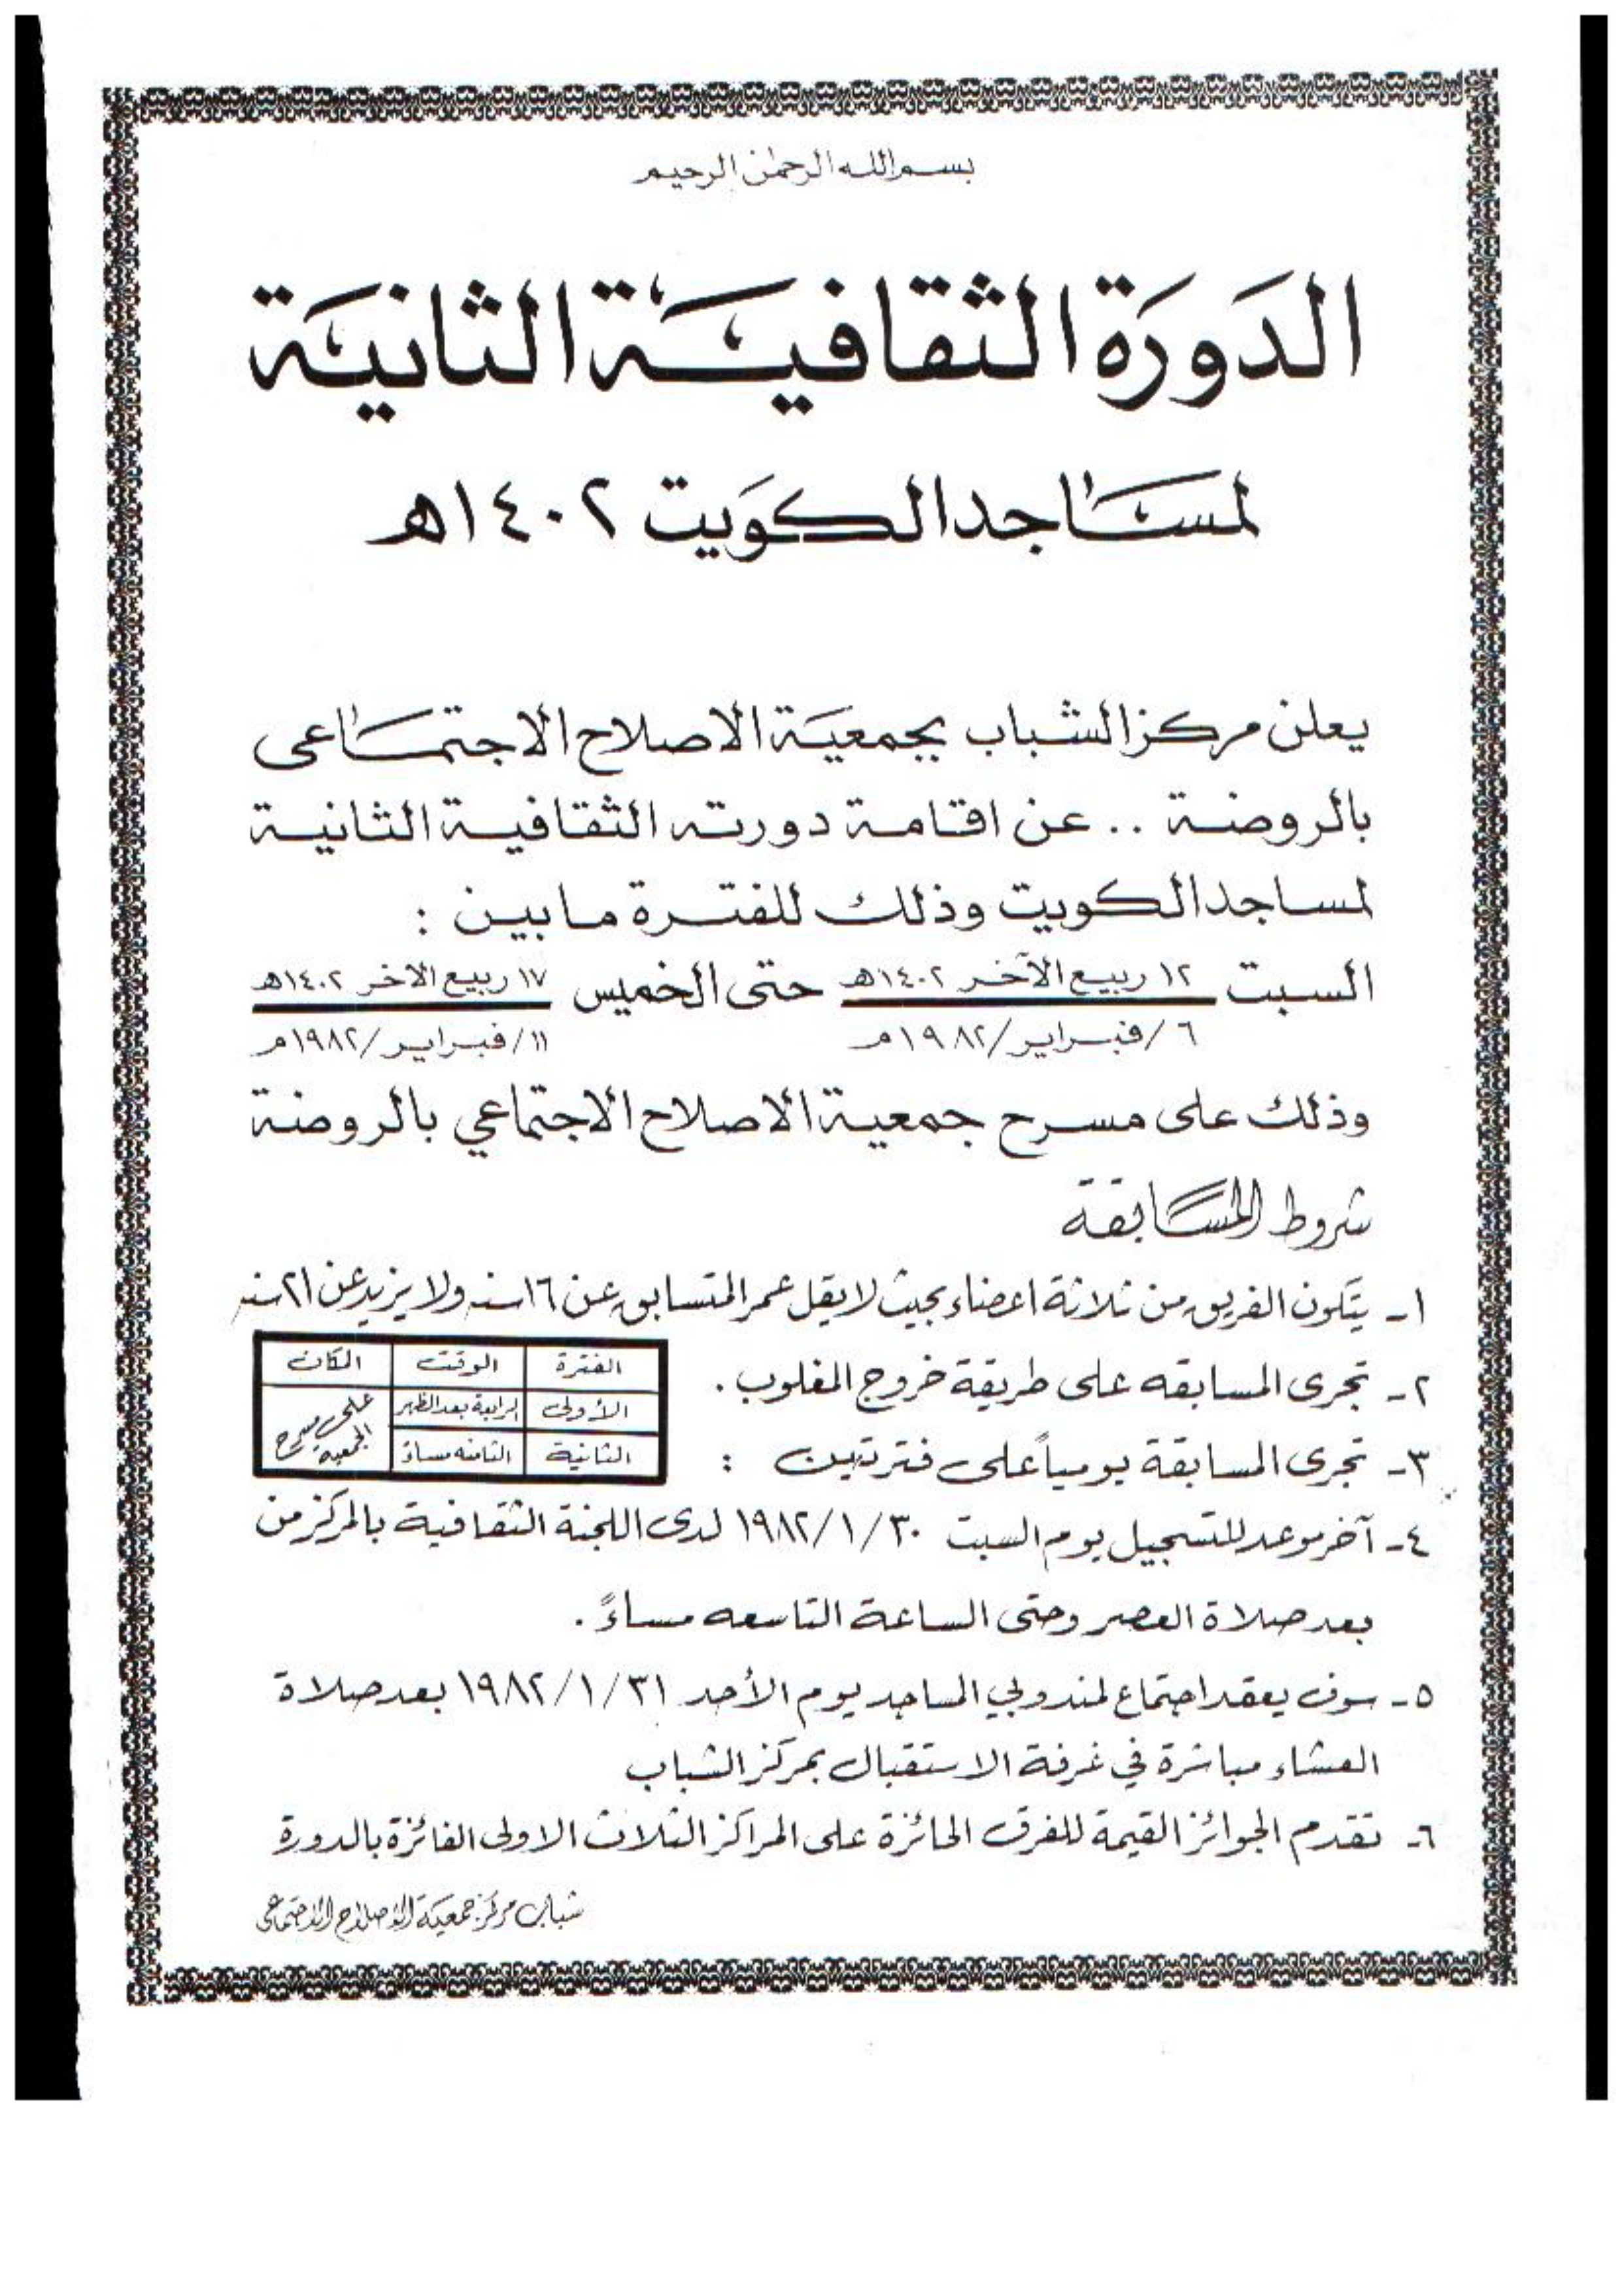 بسم الله الرحمن الرحيم
الدَورَة الثقافيَّة الثانيَة
لمسَاجد الكوَيت ١٤٠٢هـ
يعلن مركز الشباب بجمعيَة الاصلاح الاجتمَاعى
بالروضة .. عن اقامة دورته الثقافية الثانية
لمساجد الكويت وذلك للفترة ما بين :
السبت ١٢ ربيع الآخر ١٤٠٢هـ حتى الخميس ١٧ ربيع الاخر ١٤٠٢هـ
٦/فبراير/١٩٨٢م ١١/فبراير/١٩٨٢م
وذلك على مسرح جمعية الاصلاح الاجتماعي بالروضة
شروط المسابقة
١- يتكون الفريق من ثلاثة اعضاء بحيث لا يقل عمر المتسابق عن ١٦ سنه ولا يزيد عن ٢١ سنه
٢- تجرى المسابقه على طريقة خروج المغلوب .
٣- تجرى المسابقة يومياً على فترتين :
الفترة الوقت المكان
الأولى الرابعة بعد الظهر على مسرح الجمعية
الثانية الثامنه مساءً
٤- آخر موعد للتسجيل يوم السبت ١٩٨٢/١/٣٠ لدى اللجنة الثقافية بالمركز من
بعد صلاة العصر وحتى الساعة التاسعه مساءً .
٥- سوف يعقد اجتماع لمندوبي المساجد يوم الأحد ١٩٨٢/١/٣١ بعد صلاة
العشاء مباشرة في غرفة الاستقبال بمركز الشباب
٦- تقدم الجوائز القيمة للفرق الحائزة على المراكز الثلاث الاولى الفائزة بالدورة
شباب مركز جمعية الاصلاح الاجتماعى